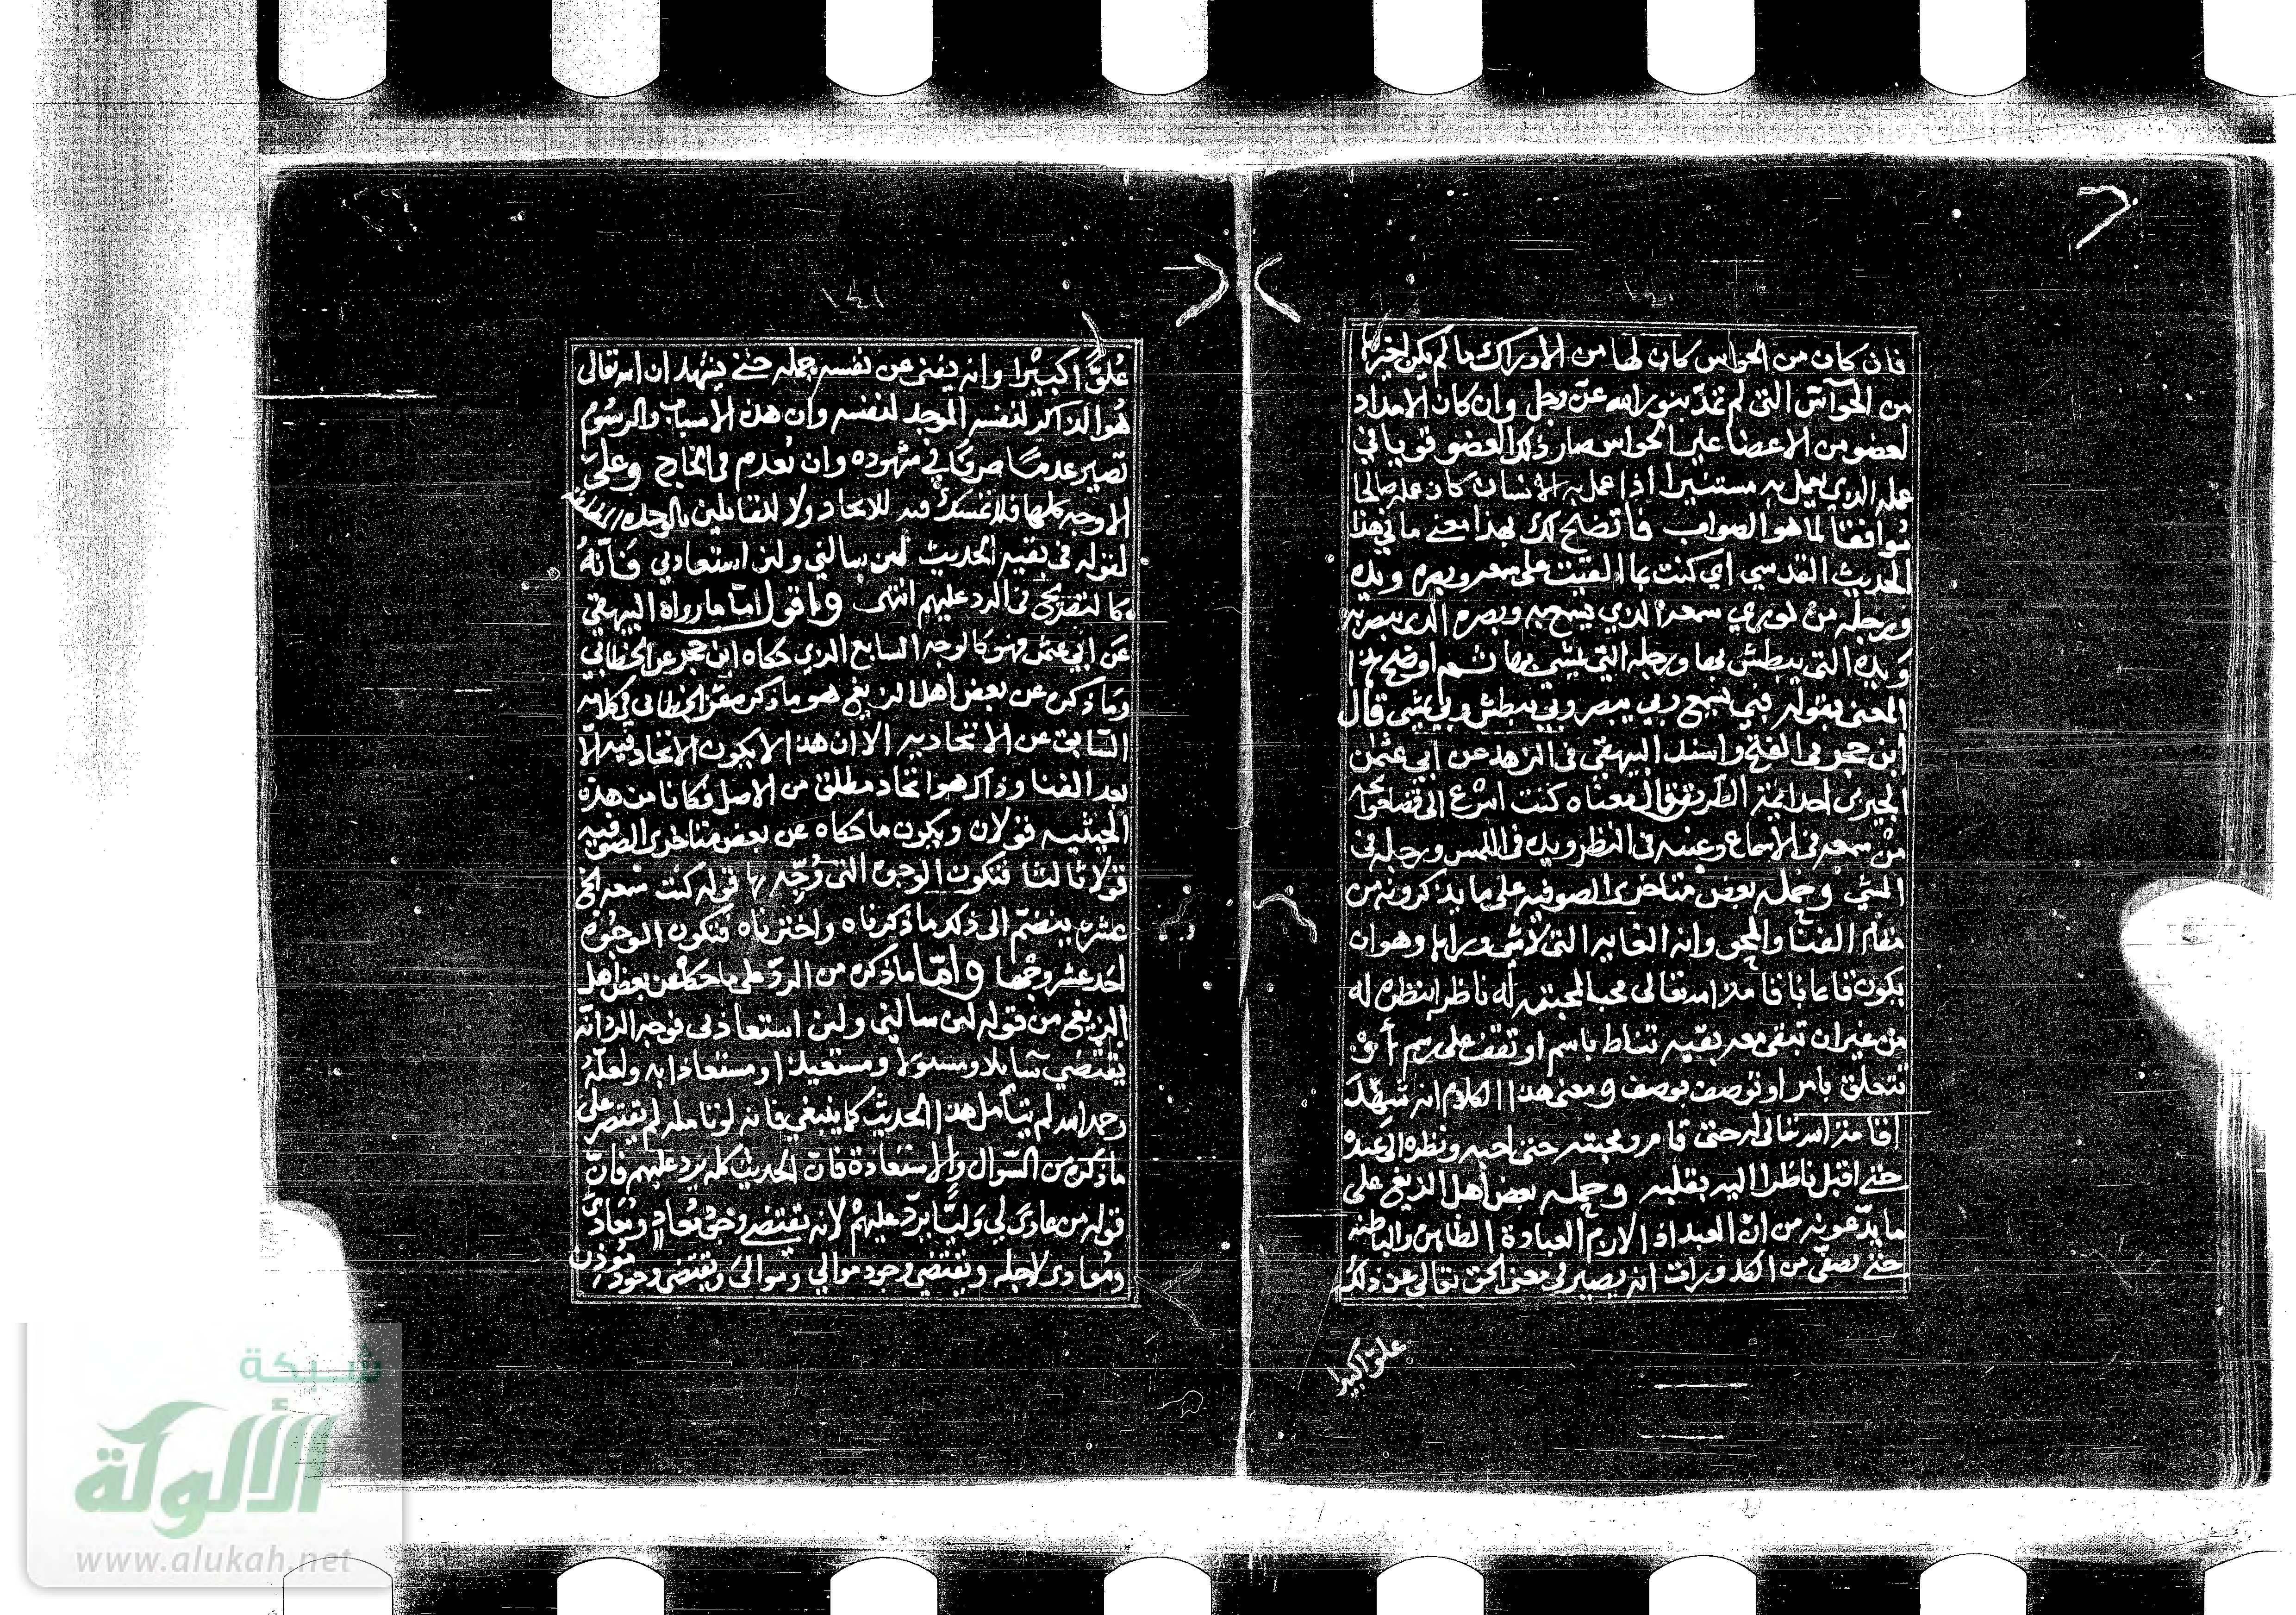 فان كان من الحواس كان لها من الادراك ما لم يكن لغيرها
من الحوآس التى لم تمد بنور الله عزّ وجل وان كان الامداد
لعضو من الاعضا غير الحواس صار ذلك العضو قويا في
عمله الذي يعمل به مستنيرا اذا عمل به الانسان كان عمله صالحا
مُوافقا لما هو الصواب فاتضح لك بهذا معنى ما في هذا
الحديث القدسي اي كنت بما القيت على سمعه وبصره ويده
ورجله من نوري سمعه الذي يسمع به وبصره الذي يبصر به
ويده التي يبطش بها ورجله التي يمشي بها ثم اوضح هذا
المعنى بقوله فبي يسمع وبي يبصر وبي يبطش وبي يمشي قال
ابن حجر في الفتح واسند البيهقي في الزهد عن ابي عثمن
الجيرى احد ايمة الطريق قال معناه كنت اسرع الى قضا حوايجه
من سمعه في الاسماع وعينه في النظر ويده في اللمس ورجله في
المشي وحمله بعض متاخرى الصوفيه على ما يذكرونه من
مقام الفنا والمحو وانه الغايه التى لا شي وراها وهو ان
يكون قايما باقامة الله تعالى محبا لمحبته له ناظرا بنظره له
من غير ان تبقى معه بقيه تناط باسم او تقف على رسم أو
تتعلق بامر او توصف بوصف ومعنى هذا الكلام انه شهد
اقامة الله تعالى له حتى قام ومحبته حتى احبه ونظره الى عبده
حتى اقبل ناظرا اليه بقلبه وحمله بعض اهل الزيغ على
ما يدّعونه من ان العبد اذا لازم العبادة الظاهره والباطنه
حتى تصفّى من الكدورات انه يصير في معنى الحق تعالى عن ذلك
علوّا كبيرا
عُلوًّا كبيْرا وانه يفنى عن نفسه جملة حتى يشهد ان الله تعالى
هُو الذاكر لنفسه الموحد لنفسه وان هذه الاسباب والرسُوم
تصير عدمًا صرفًا في شهوده وان تُعدم في الخارج وعلى
الاوجه كلها فلا تمسك فيه للاتحاد ولا للقايلين بالوحده المطلقه
لقوله في بقية الحديث لئن سالني ولئن استعاذني فانّهُ
كالتصريح في الرد عليهم انتهى واقول امّا ما رواه البيهقي
عن ابي عثمن فهو كالوجه السابع الذي حكاه ابن حجر عن الخطابي
وما ذكره عن بعض اهل الزيغ هو ما ذكره عن الخطابي في كلامه
السّابق عن الاتحاديه الا ان هذا لا يكون الاتحاد فيه الّا
بعد الفنا وذاك هو اتحاد مطلق من الاصل فكانا من هذه
الحيثيه قولان ويكون ما حكاه عن بعض متاخرى الصوفيه
قولا ثالثا فتكون الوجوه التى وُجّه بها قوله كنت سمعه الخ
عشره ينضمّ الى ذلك ما ذكرناه واخترناه فتكون الوجُوه
احد عشر وجها وامّا ما ذكره من الردّ على ما حكاه عن بعض اهل
الزيغ من قوله لئن سالني ولئن استعاذني فوجه الرد انّه
يقتضي سَايلا ومسئولا ومستعيذا ومستعاذا به ولعلّهُ
رحمه الله لم يتأمل هذا الحديث كما ينبغي فانه لو تامله لم يقتصر على
ما ذكره من السّوال والاستعاذة فان الحديث كله يرد عليهم فانّ
قوله من عادى لي وَليّا يردّ عليهمْ لانه يقتضي وجود مُعادٍ ومُعادًى
ومُعادى لاجله ويقتضي وجود موالي ومُوالَى ويقتضى وجود مُوذن
شبكة
الألوكة
www.alukah.net